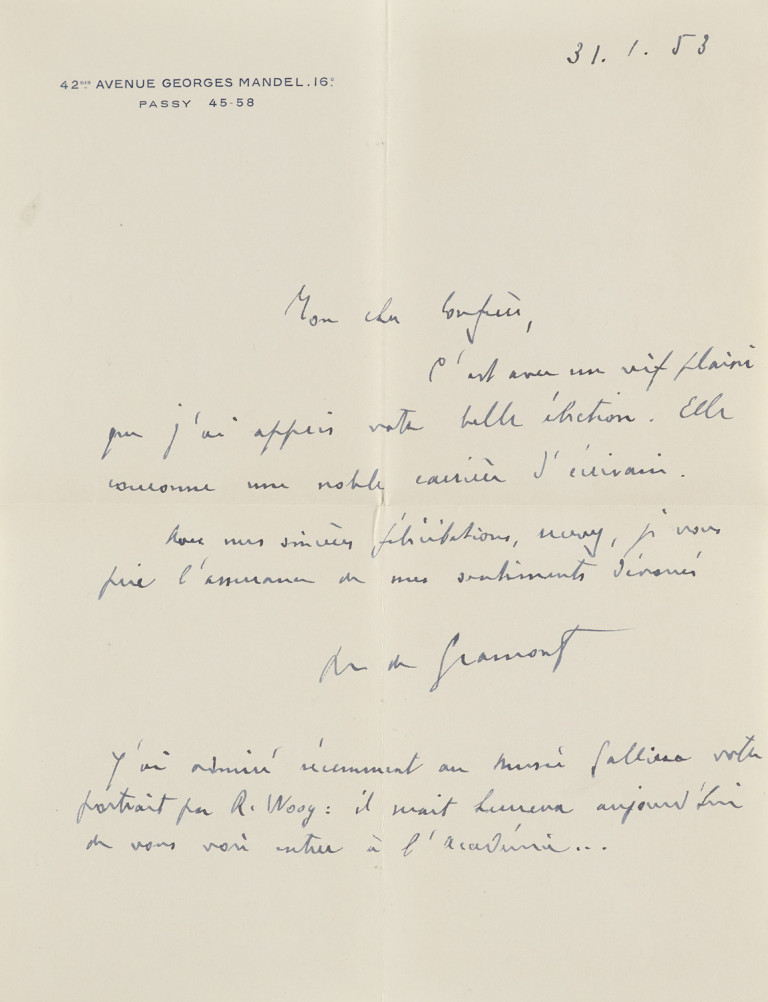 31.1.53
42BIS AVENUE GEORGES MANDEL.16E
PASSY 45-58
Mon cher Confrère,
C'est avec un vif plaisir
que j'ai appris votre belle élection. Elle
couronne une noble carrière d'écrivain.
Avec mes sincères félicitations, recevez, je vous
prie l'assurance de mes sentiments dévoués
de Gramont
J'ai admiré récemment au musée Galliera votre
portrait par R. Woog: il serait heureux aujourd'hui
de vous voir entrer à l'Académie...